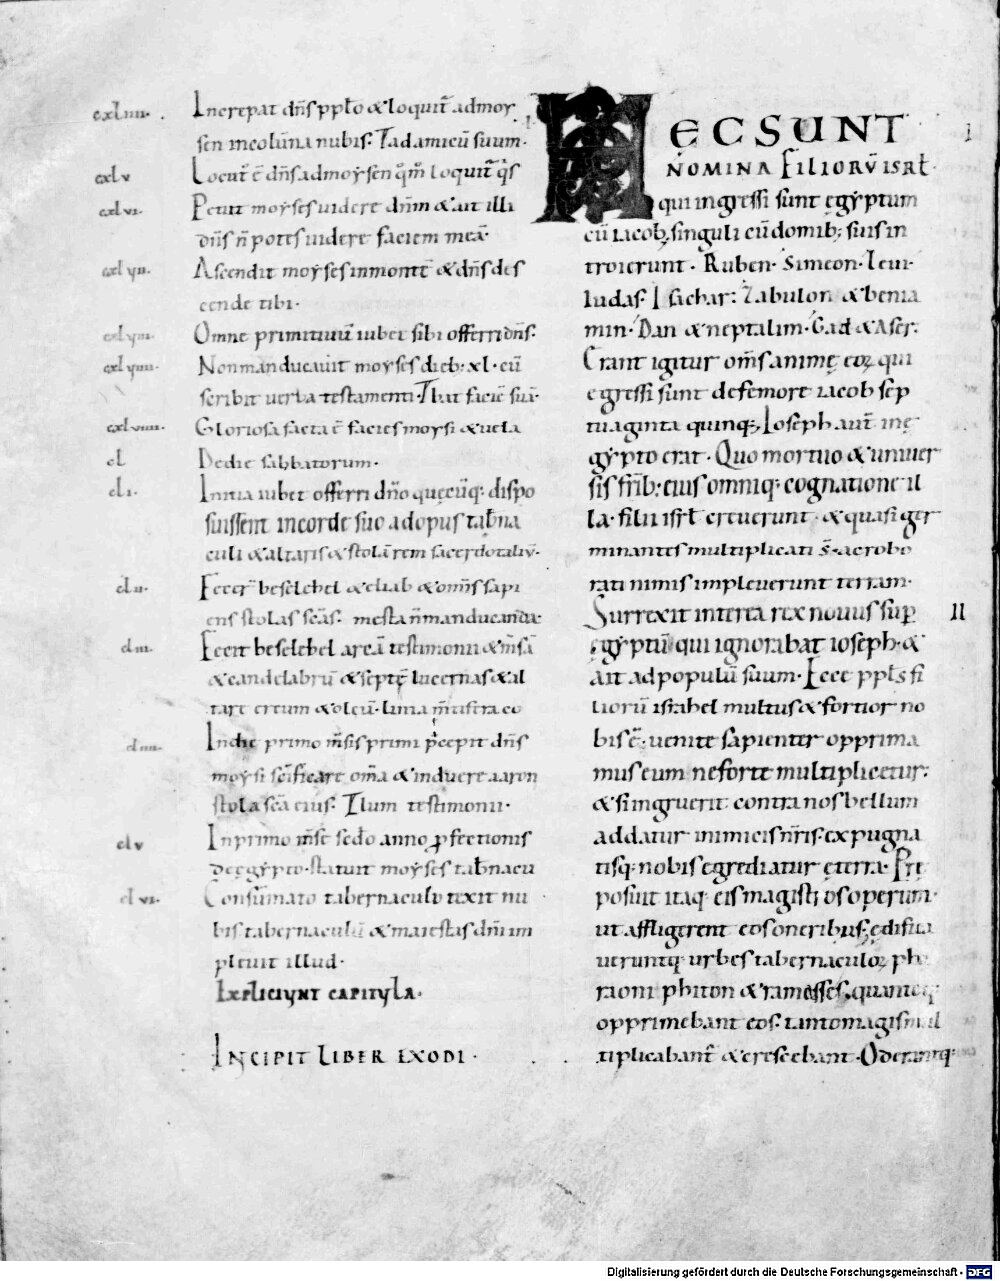 cxliiii. Increpat dn̄s ppl̄o & loquit̄ ad moy
sen in colūna nubis. T ad amicū suum.
cxlv Locut̄ ē dn̄s ad moysen q̄m̄ loquit̄ q̄s
cxlvi. Petiit moyses videre dn̄m & ait illi
dn̄s n̄ potes videre faciem meā.
cxlvii. Ascendit moyses in montē & dn̄s des
cende tibi.
cxlviii. Omne primitiuū iubet sibi offerri dn̄s.
cxlviiii. Non manducauit moyses dieb; xl. cū
scribit uerba testamenti.
Gloriosa facta ē facies moysi & uela
cl De die sabbatorum.
cli. Initia iubet offerri dn̄o quęcūq; dispo
suissent in corde suo ad opus tab̄na
culi & altaris & stolā rem sacerdotaliū.
clii. Fecer̄ beselehel & eliab & om̄s sapi
ens stolas sc̄as. n̄ manducanda.
cliii. Fecit beselehel arcā testimonii & m̄sā
& candelabrū & septē lucernas & al
tare & oleū.
cliiii. In die primo m̄sis primi p̄cepit dn̄s
moysi sc̄ificare om̄a & induere aaron
stola sc̄a eius. testimonii.
clv In primo m̄se sc̄do anno ꝓfectionis
de ęgypto. statuit moyses tab̄nacu
clvi. Consūmato tabernaculo texit nu
bis tabernaculū & maiestas dn̄i im
pleuit illud.
EXPLICIUNT CAPITULA.
INCIPIT LIBER EXODI.
HEC SUNT I
NOMINA FILIORŪ ISRL̄.
qui ingressi sunt ęgyptum
cū iacob; singuli cū domib; suis in
troierunt. Ruben. Simeon. Leui.
Iudas. Isachar. Zabulon & benia
min. Dan & neptalim. Gad & Aser.
Erant igitur om̄s animę eoꝝ qui
egressi sunt de femore iacob sep
tuaginta quinq; Ioseph aut̄ in ę
gypto erat. Quo mortuo & uniuer
sis frīb; eius omniq; cognatione il
la. filii isrl̄ creuerunt. & quasi ger
minantes multiplicati s̄. ac robo
rati nimis impleuerunt terram.
Surrexit interea rex nouus sup̄ II
ęgyptū qui ignorabat ioseph. &
ait ad populū suum. Ecce ppl̄s fi
liorū israhel multus & fortior no
bis ē. uenite sapienter opprima
mus eum ne forte multiplicetur.
& si ingruerit contra nos bellum
addatur inimicis nr̄is. expugna
tisq; nobis egrediatur e terra. Prę
posuit itaq; eis magistros operum.
ut affligerent eos oneribus. edifica
ueruntq; urbes tabernaculoꝝ pha
raoni phiton & ramesses. quantoq;
opprimebant eos. tanto magis mul
tiplicabant̄ & crescebant. Oderantq;
Digitalisierung gefördert durch die Deutsche Forschungsgemeinschaft - DFG